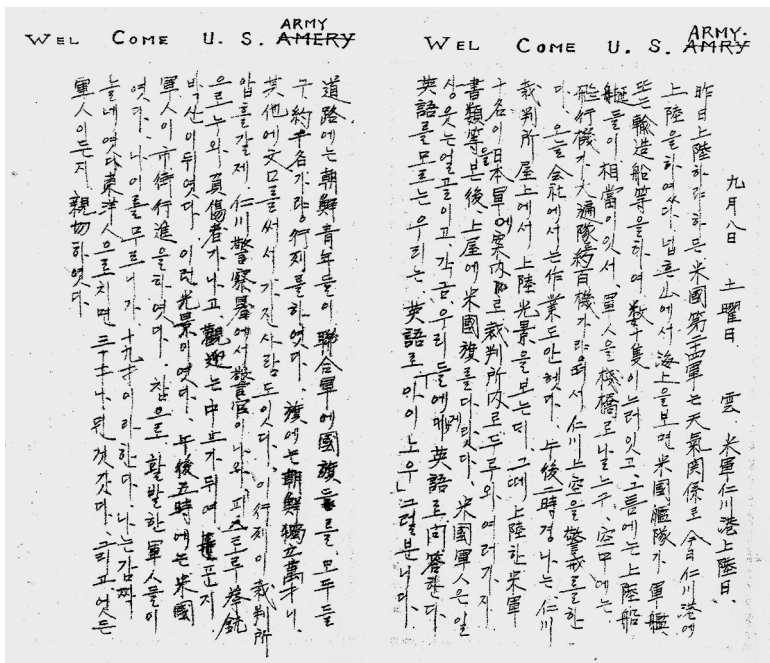 WEL COME U. S. ARMY. AMRY
九月八日 土曜日. 雲 米軍仁川港上陸日.
昨日上陸하랴하든米國第二十四軍는天氣關係로 今日仁川港에
上陸을하엿다. 넙흔山에서海上을보면米國艦隊가 軍艦
또는輸送船等을하여数十隻이느러잇고, 그틈에는上陸船
艇들이 相當이잇서, 軍人을棧橋로날느구, 空中에는
飛行機가大編隊約百機가량떠서仁川上空을警戒를한
다. 오늘會社에서는作業도안햇다. 午後一時경나는仁川
裁判所屋上에서上陸光景을보는데, 그때上陸한米軍
十名이日本軍에案内으로裁判所内로두루와, 여러가지
書類等을본後, 上屋에米國旗를다럿다. 米國軍人은일
상웃는얼골이고, 각금, 우리들에게英語로問答한다.
英語를모르는우리는英語로「아이노우」그럴분니다.
WEL COME U. S. ARMY AMERY
道路에는朝鮮靑年들이聯合軍에國旗들를, 모두들
구約千名가량行列를하엿다. 旗에는朝鮮獨立萬才니,
其他에文口를써서가진사람도잇다. 이行列이裁判所
압흘갈제, 仁川警察署에서警官이나와, 피스토루拳銃
으로누와, 負傷者가나고, 觀迎는中止가뒤여
박산이뒤엿다. 이런光景이엿다. 午後五時에는米國
軍人이市街行進을하엿다. 참으로활발한軍人들이
엿다. 나이를무르니가, 十九才이라한다. 나는감짝
놀내엿다. 東洋人으로치면三十才나뒤겻갓다. 그리고엇든
軍人이든지, 親切하엿다.